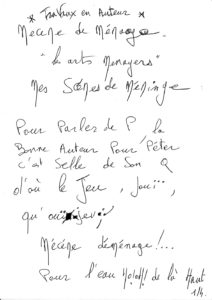 * Travaux en Auteur *
Mécène de Ménage.
"les arts Menagers"
Mes Scènes de Méninge:
Pour Parler de P, la
Bonne Auteur Pour Péter
c'est Selle de Son Q
d'où le Jeu, Joui..,
qu'
Mécène déménage!...
Pour l'eau de là Haut
1/4.